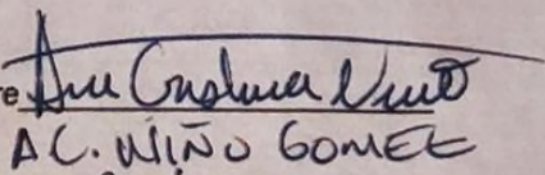 Ana Cristina Niño
A C. NIÑO GOMEZ